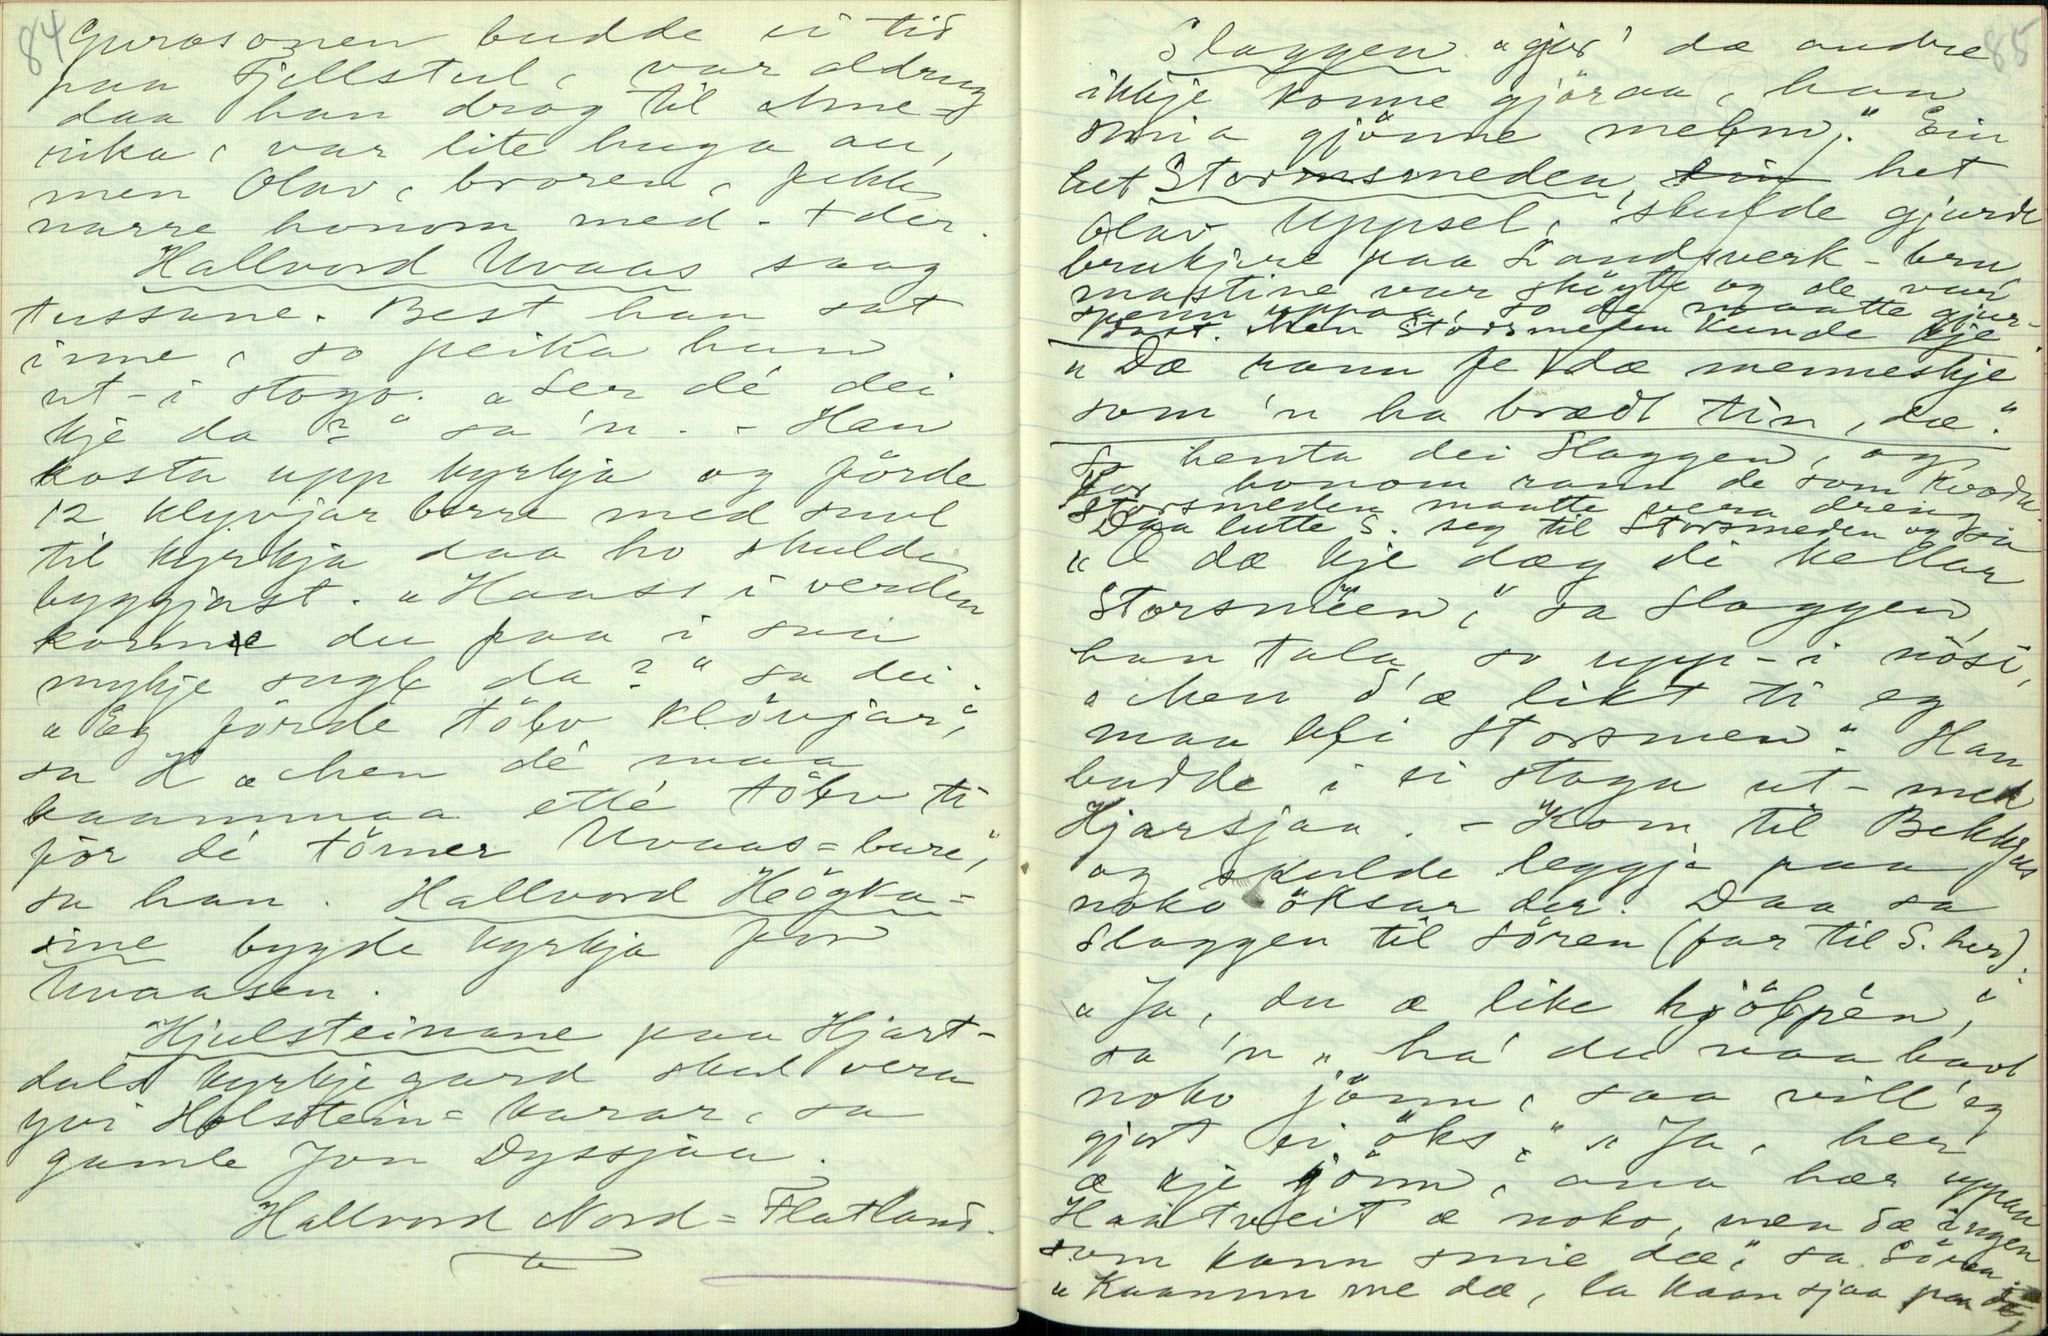 84
Gurosonen budde ei tid
paa Fjellstul, var aldrug
daa han drog til Ame-
rika, var lite huga au,
men Olav, broren, fekk
narre honom med. + der.
Hallvord Uvaas saag
tussane. Best han sat
inne, so peika han
ut-i stogo. "Ser dé dei
kje da?" sa 'n. - Han
kosta upp kyrkja og förde
12 klyvjar berre med suvl
til kyrkja daa ho skulde
byggjast. "Haass i verden
komme du paa i saa
mykje sugl da?" sa dei.
"Eg förde tölv klövjar",
sa H "Men dé maa
kaammaa etté tölv ti
för dé tömer Uvaas=bure",
sa han. Hallvord Högka=
sine bygde kyrkja for
Uvaasen.
Hjulsteinane paa Hjart-
dals kyrkjegard skul vera
yvi Holstein=karar, sa
gamle Jon Dyssjaa.
Hallvord Nord=Flatland.
85
Slaggen "gjer' dæ andre
ikkje konne gjöraa, han
smia gjönne melom." Ein
het Storsmeden, het
Olav Uppsel, skulde gjurde
brukjere paa Landsverk-bru,
mastine var sköytte og de var
spenn uppaa, so de maatte gjur-
dast. Men Storsmeden kunde kje.
"Dæ rann fe dæ menneskje
som 'n ha brædt tin, dæ."
So henta dei Slaggen, og
for honom rann de som kvada.
Storsmeden maatte vera dreng
Daa lutte S. seg til Storsmeden og sa
"Æ dæ kje dæg di kellar
Storsméen," sa Slaggen,
han tala so upp-i nösi,
"Men d'æ likt ti eg
maa bli Storsmen". Han
budde i ei stogu ut-med
Hjarsjaa. - Kom til Bekkhus
og skulde leggja paa
noko öksar der. Daa sa
Slaggen til Sören (far til S. her):
"Ja, du æ like kjölpén",
sa 'n "ha' du naa havt
noko jönn, saa vill eg
gjort ei öks." "Ja, her
æ kje jönn, ana hær uppaa
Haatveit æ noko, men dæ ingen
som kann smie dæ," sa Sören.
"Kaamm me dæ, la kaan sjaa paa dæ,